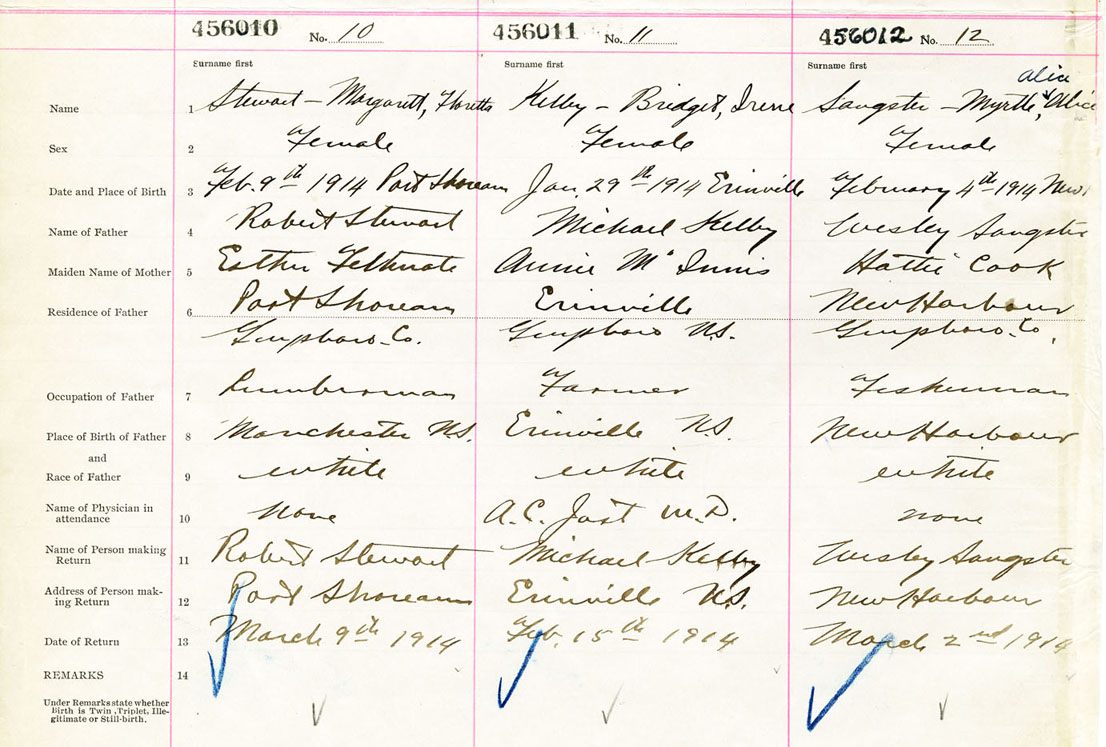 456010 No. 10 456011 No. 11 456012 No. 12
Surname first Surname first Surname first
alice
Name 1 Stewart – Margarett, Floretta Kelby – Bridget, Irene Sangster – Myrtle, Alice
Sex 2 Female Female Female
Date and Place of Birth 3 Feb. 9th 1914 Port Shoream Jan. 29th 1914 Erinville February 4th 1914 New
Name of Father 4 Robert Stewart Michael Kelby Wesley Sangster
Maiden Name of Mother 5 Esther Feltmate Annie McInnis Hattie Cook
Residence of Father 6 Port Shoream Erinville New Harbour
Guysboro Co. Guysboro N.S. Guysboro Co.
Occupation of Father 7 Lumberman Farmer Fisherman
Place of Birth of Father 8 Manchester N.S. Erinville N.S. New Harbour
and
Race of Father 9 white white white
Name of Physician in
attendance 10 None A.C. Jost M.D. none
Name of Person making
Return 11 Robert Stewart Michael Kelby Wesley Sangster
Address of Person mak-
ing Return 12 Port Shoream Erinville N.S. New Harbour
Date of Return 13 March 9th 1914 Feb. 15th 1914 March 2nd 1914
REMARKS 14
Under Remarks state whether
Birth is Twin, Triplet, Ille-
gitimate or Still-birth.